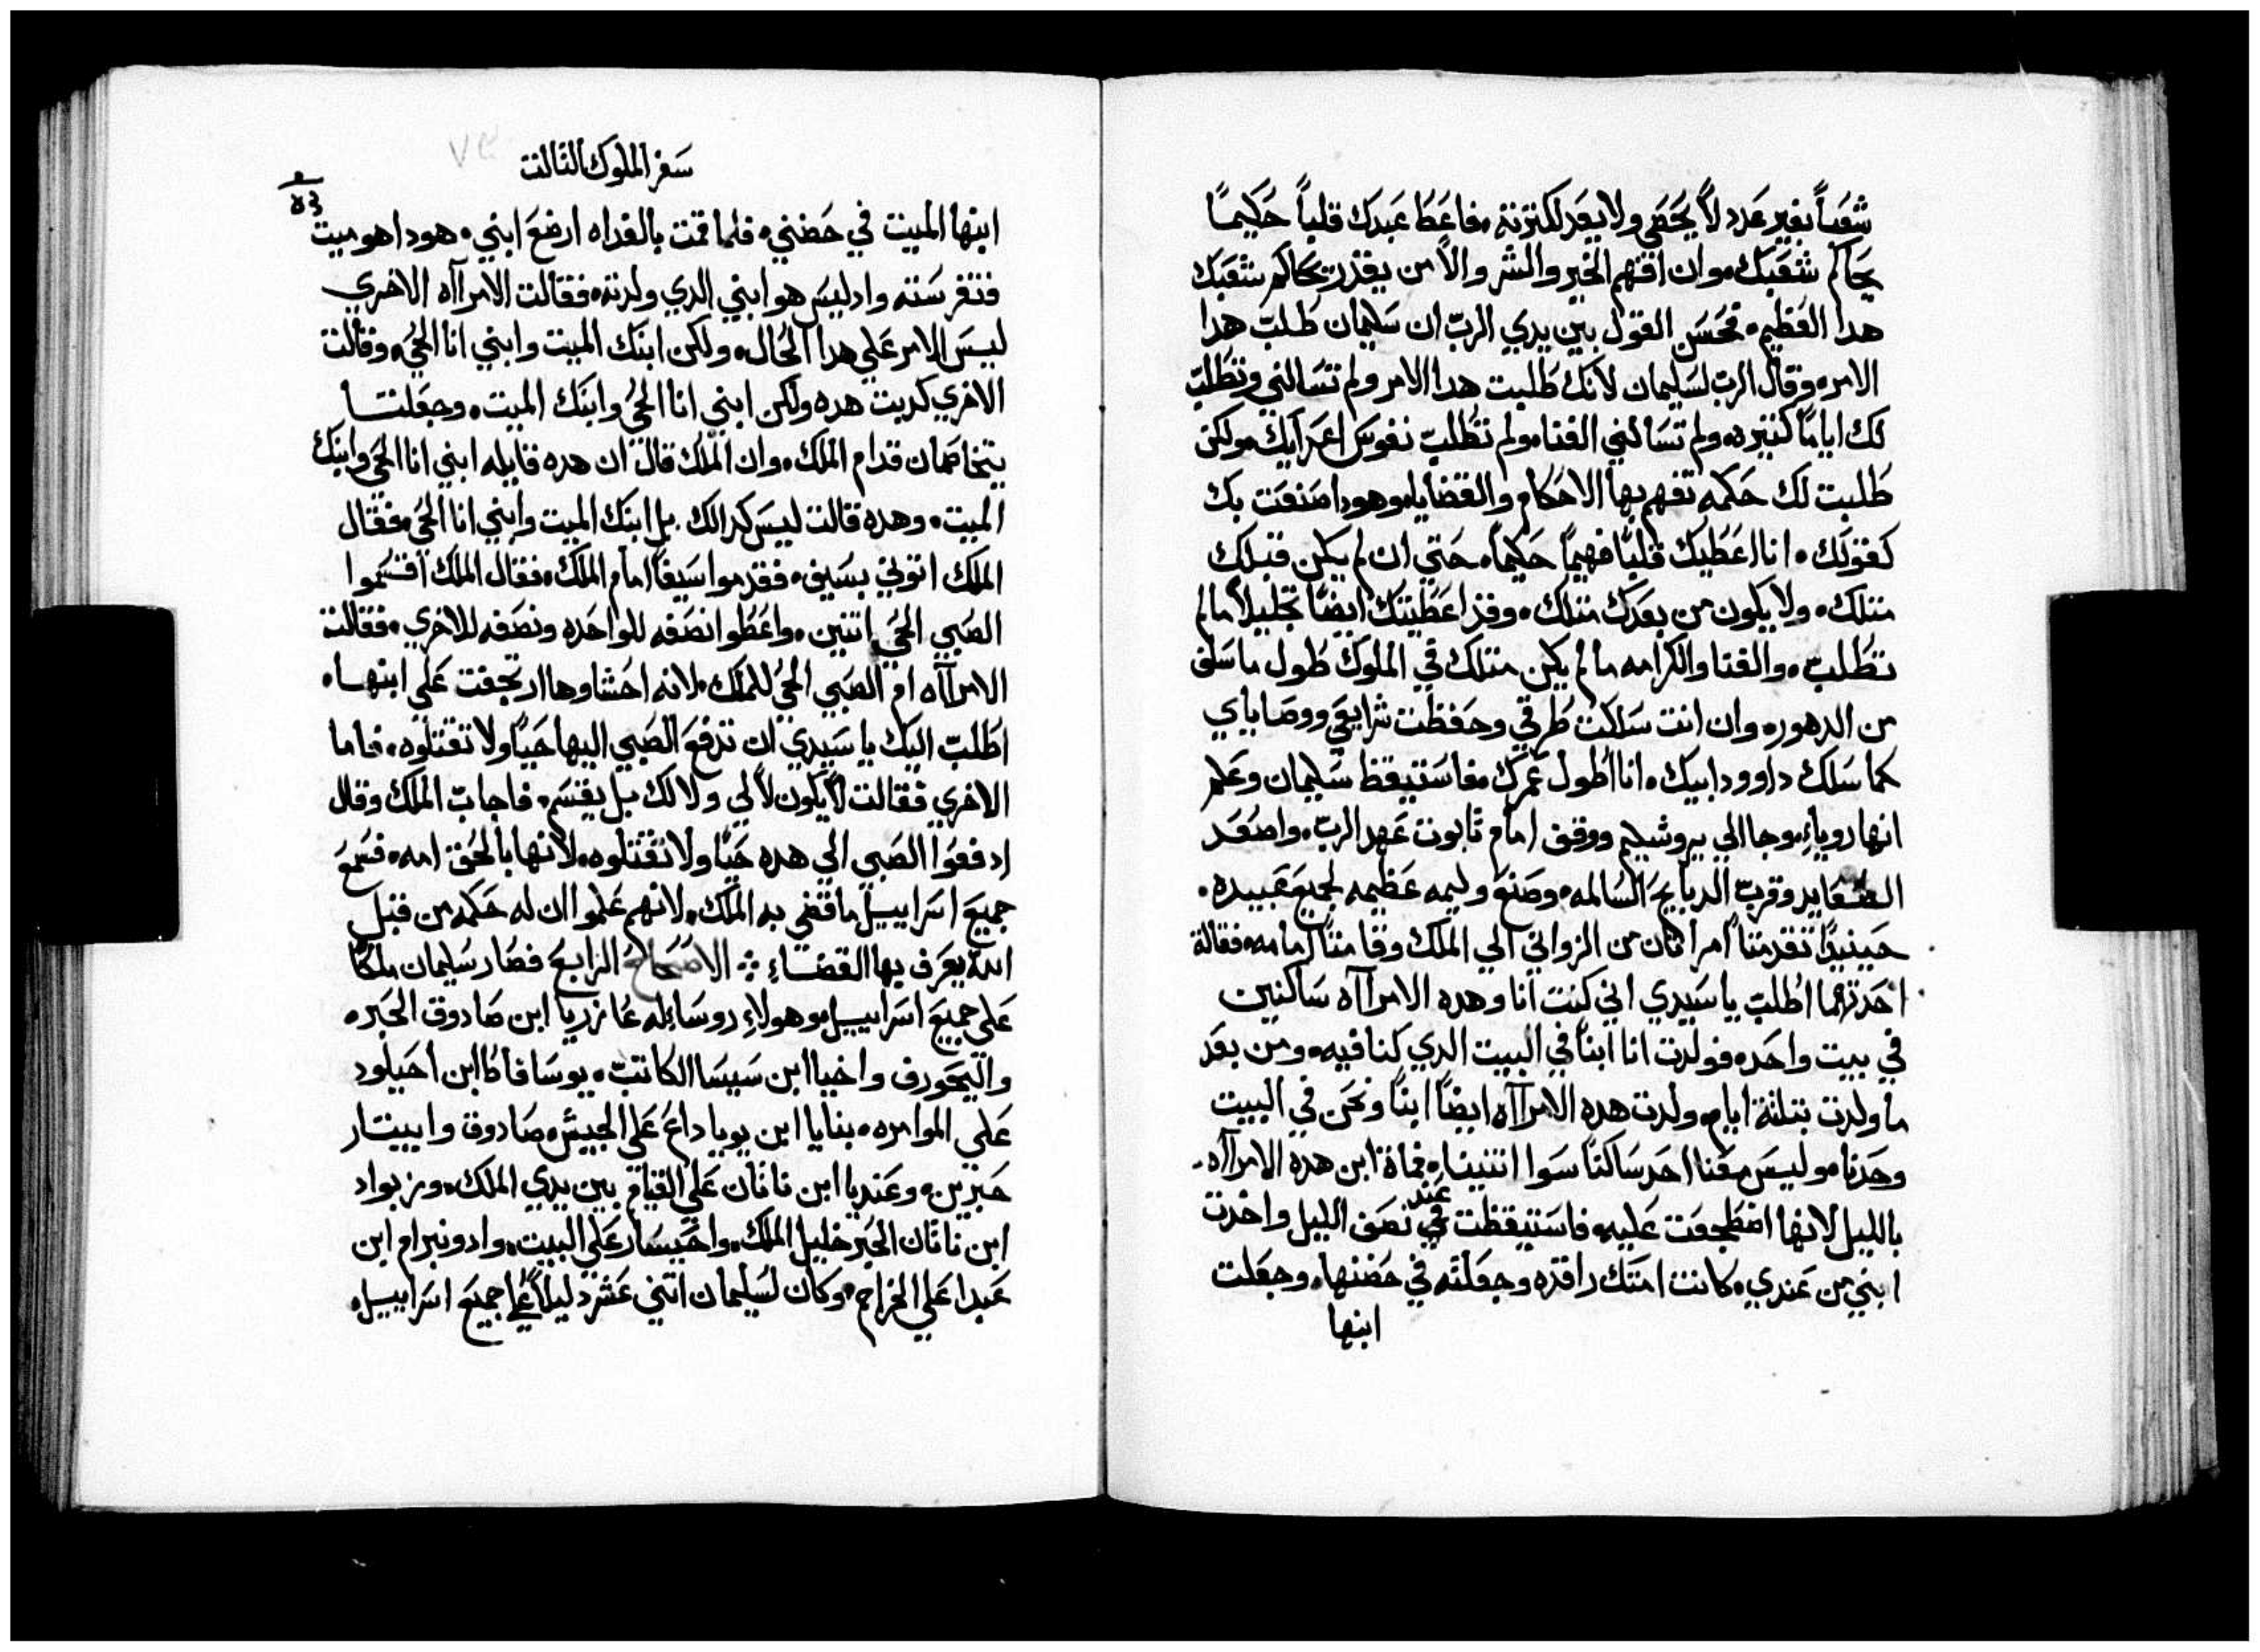 شعباً بغير عدد لا يحصي ولا يعد لكثرته فاعط عبدك قلباً حكيماً
يحاكم شعبك وان افهم الخير والشر والا من يقدر يحاكم شعبك
هدا العظيم فحسن القول بين يدي الرب ان سليمان طلب هدا
الامر وقال الرب لسليمان لانك طلبت هدا الامر ولم تسالني وتطلب
لك اياماً كتيره ولم تسالني الغنا ولم تطلب نفوس اعدايك ولكن
طلبت لك حكمه تفهم بها الاحكام والقضايا وهودا صنعت بك
كقولك انا اعطيك قلباً فهيماً حكيماً حتي ان لم يكن قبلك
متلك ولا يكون من بعدك متلك وقد اعطيتك ايضاً تجليلاً ما لم
تطلب والغنا والكرامه ما لم يكن متلك في الملوك طول ما سلف
من الدهور وان انت سلكت طرقي وحفظت شرايعي ووصاياي
كما سلك داوود ابيك انا اطول عمرك فاستيقظ سليمان وعلم
انها روياء وجا الي يروشليم ووقف امام تابوت عهد الرب واصعد
الصعايد وقرب الدبايح السالمه وصنع وليمه عظيمه لجميع عبيده
حينيداً تقدمتا امراتان من الزواني الي الملك وقامتا امامه فقالة
احدتهما اطلب يا سيدي اني كنت انا وهده الامراآه ساكنين
في بيت واحد فولدت انا ابناً في البيت الدي كنا فيه ومن بعد
ما ولدت بتلتة ايام ولدت هده الامراآه ايضاً ابناً ونحن في البيت
وحدنا وليس معنا احد ساكناً سوا اتنيناه فماة ابن هده الامراآه
بالليل لانها اضطجعت عليه فاستيقظت في عند نصف الليل واخدت
ابني من عندي كانت امتك راقده وجعلته في حضنها وجعلت
ابنها
سفر الملوك التالت
ابنها الميت في حضني فلما قمت بالغداه ارضع ابني هودا هو ميت
فتفرسته واد ليس هو ابني الدي ولدته فقالت الامراآه الاخري
ليس الامر علي هدا الحال ولكن ابنك الميت وابني انا الحي وقالت
الاخري كدبت هده ولكن ابني انا الحي وابنك الميت وجعلتا
يتخاصمان قدام الملك وان الملك قال ان هده قايله ابني انا الحي وابنك
الميت وهده قالت ليس كدالك بل ابنك الميت وابني انا الحي فقال
الملك اتوني بسيف فقدموا سيفاً امام الملك فقال الملك اقسموا
الصبي الحي اتنين واعطوا نصفه للواحده ونصفه للاخري فقالت
الامراآه ام الصبي الحي للملك لانه احشاوها ارتجفت علي ابنها
اطلب اليك يا سيدي ان تدفع الصبي اليها حياً ولا تقتلوه فاما
الاخري فقالت لا يكون لا لي ولا لك بل يقسم فاجاب الملك وقال
ادفعوا الصبي الي هده حياً ولا تقتلوه لانها بالحق امه فسمع
جميع اسراييل ما قضي به الملك لانهم علموا ان له حكمه من قبل
الله يعرف بها القضاء الاصحاح الرابع فصار سليمان ملكاً
علي جميع اسراييل وهولاء روسايه عازريا ابن صادوق الحبر
واليحورف واخيا ابن سيسا الكاتب يوسافاط ابن احيلود
علي الموامره بنايا ابن يويا داع علي الجيش صادوق وابيتار
حبرين وعنديا ابن ناتان علي القيام بين يدي الملك وزبواد
ابن ناتان الحبر خليل الملك واحيسار علي البيت وادونيرام ابن
عبدا علي الخراج وكان لسليمان اتني عشر دليلاً علي جميع اسراييل